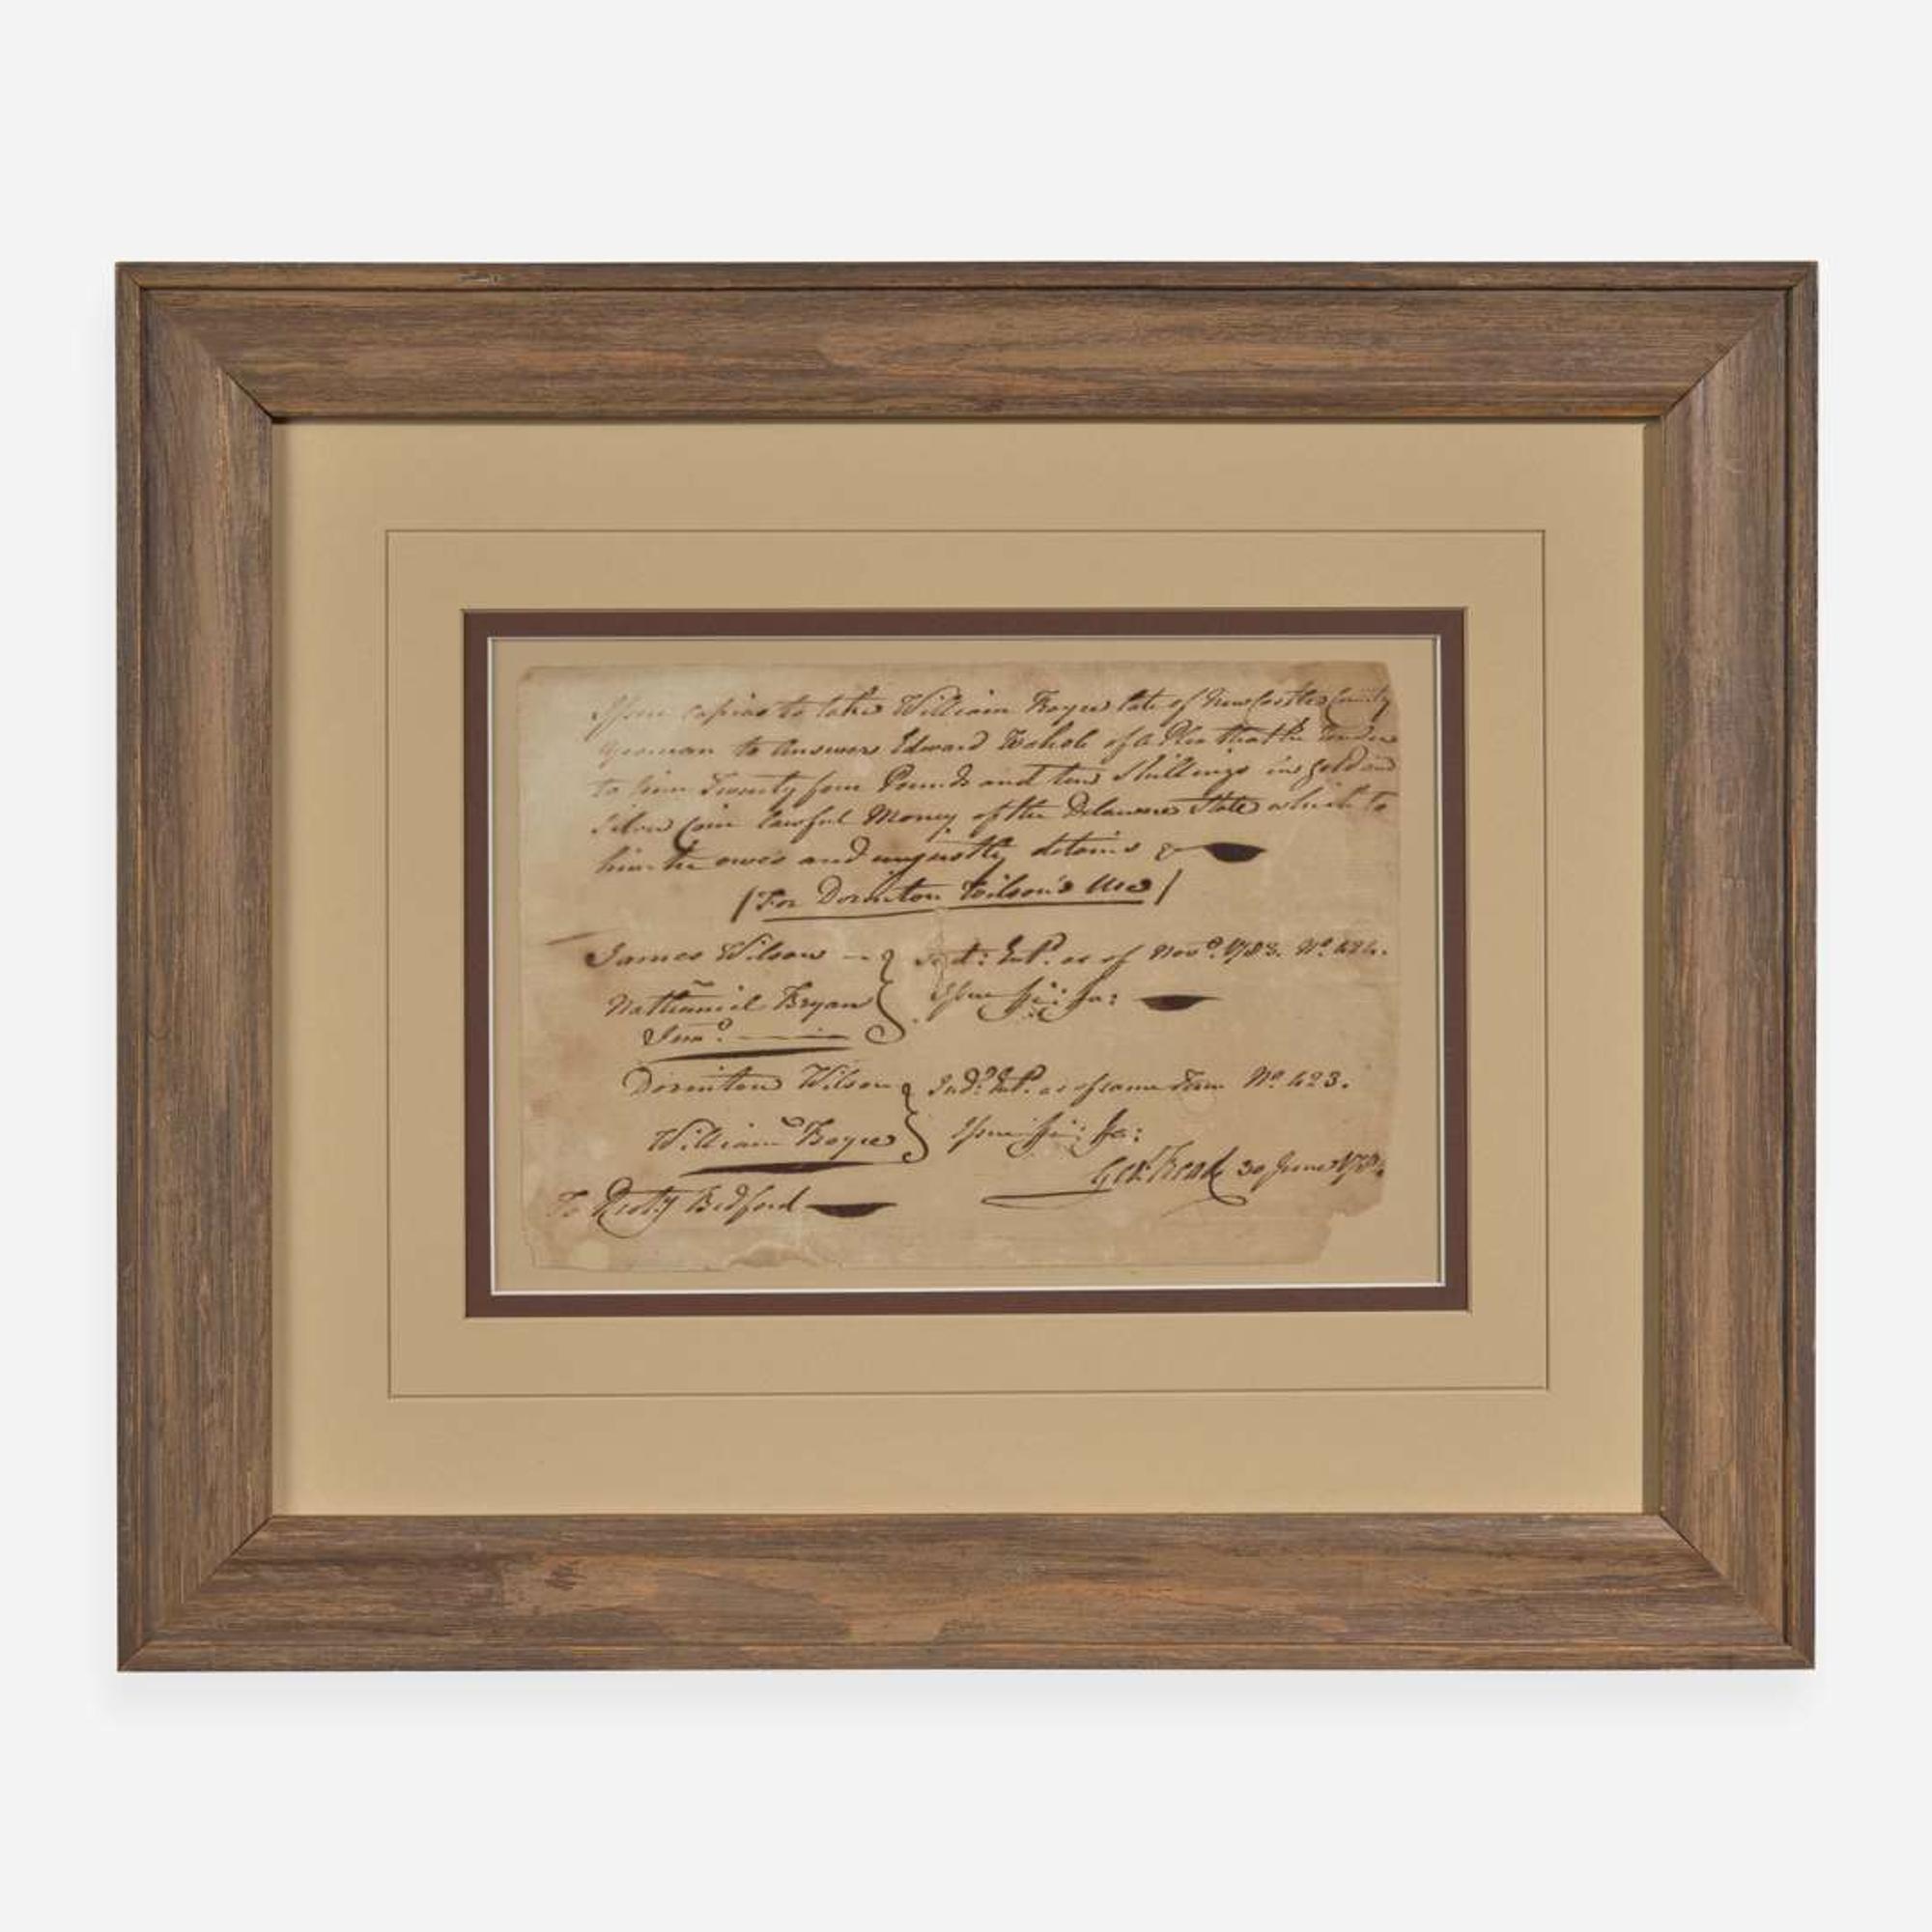 Issue capias to take William Boyce late of New Castle County
Yeoman to Answer Edward of a Plea that he render
to him Twenty four Pounds and ten Shillings in gold and
Silver Coin lawful Money of the Delaware State which to
him he owes and unjustly detains &
(For Dorinton Wilson's Use)
James Wilson — as of Nov.r 1783. No. 424.
Nathaniel Bryan Issue fi: fa:
Jun.r
Dorinton Wilson as of same Term No. 423.
William Boyce Issue fi: fa:
Geo: Read 30 June 1784
To Preoty Bedford